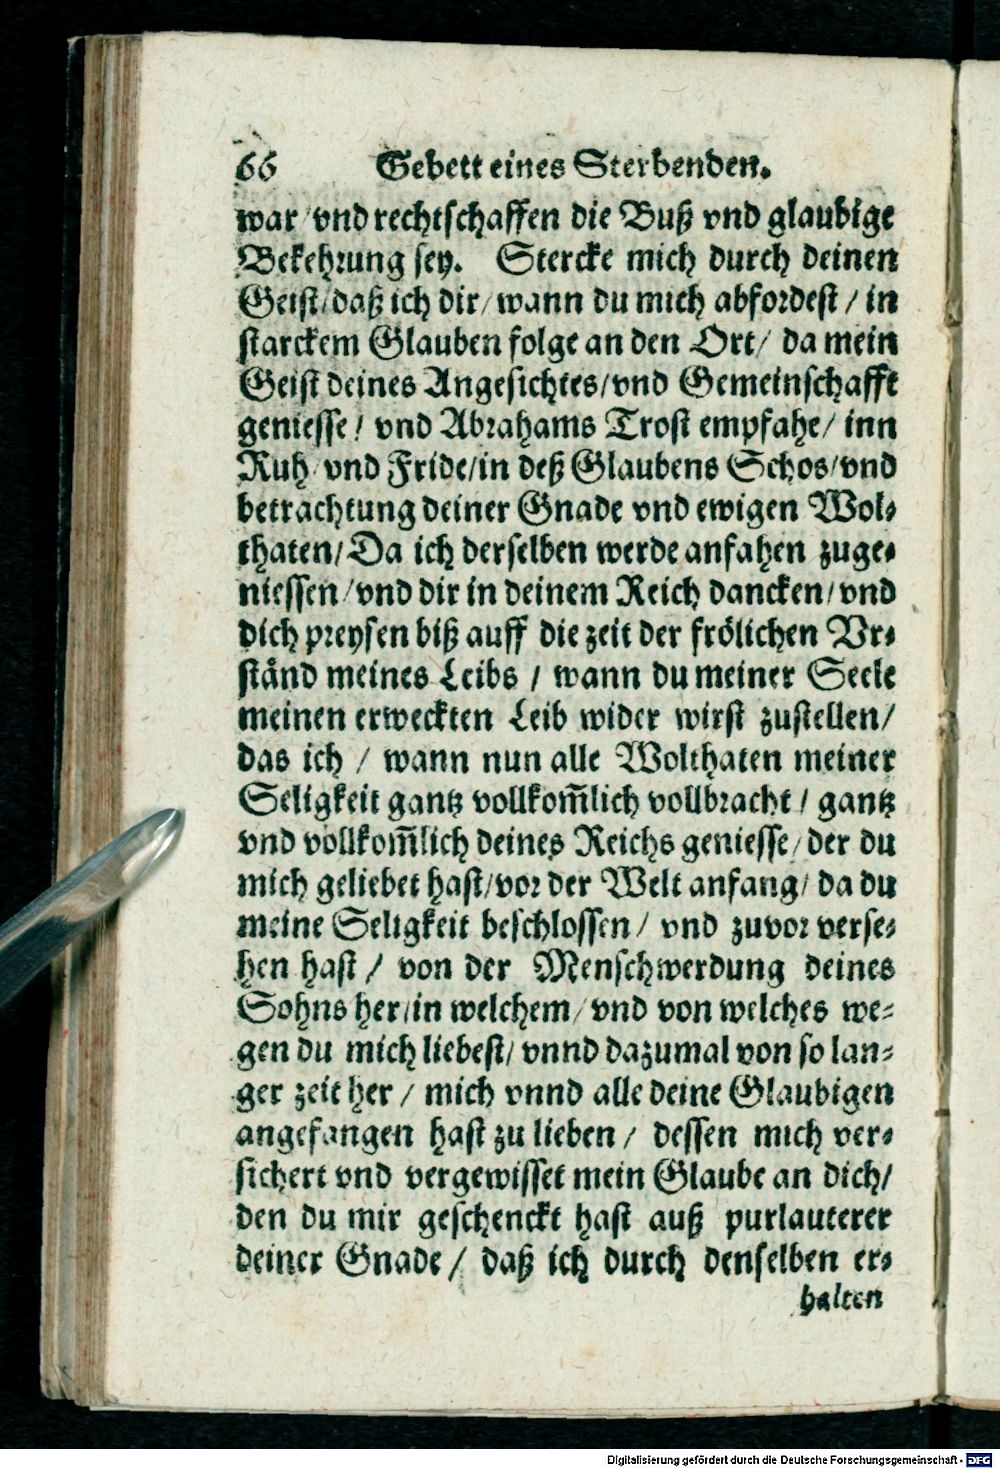 66 Gebett eines Sterbenden.
war/vnd rechtschaffen die Buß vnd glaubige
Bekehrung sey. Stercke mich durch deinen
Geist/daß ich dir/wann du mich abfordest/ in
starckem Glauben folge an den Ort/ da mein
Geist deines Angesichtes/vnd Gemeinschafft
geniesse/ vnd Abrahams Trost empfahe/ inn
Ruh/vnd Fride/in deß Glaubens Schos/vnd
betrachtung deiner Gnade vnd ewigen Wol-
thaten/Da ich derselben werde anfahen zuge-
niessen/vnd dir in deinem Reich dancken/vnd
dich preysen biß auff die zeit der frölichen Vr-
ständ meines Leibs / wann du meiner Seele
meinen erweckten Leib wider wirst zustellen/
das ich / wann nun alle Wolthaten meiner
Seligkeit gantz vollkom̃lich vollbracht/ gantz
vnd vollkom̃lich deines Reichs geniesse/der du
mich geliebet hast/vor der Welt anfang/ da du
meine Seligkeit beschlossen/ vnd zuvor verse-
hen hast / von der Menschwerdung deines
Sohns her/in welchem/vnd von welches we-
gen du mich liebest/ vnnd dazumal von so lan-
ger zeit her / mich vnnd alle deine Glaubigen
angefangen hast zu lieben/ dessen mich ver-
sichert vnd vergewisset mein Glaube an dich/
den du mir geschenckt hast auß purlauterer
deiner Gnade / daß ich durch denselben er-
halten
Digitalisierung gefördert durch die Deutsche Forschungsgemeinschaft - DFG